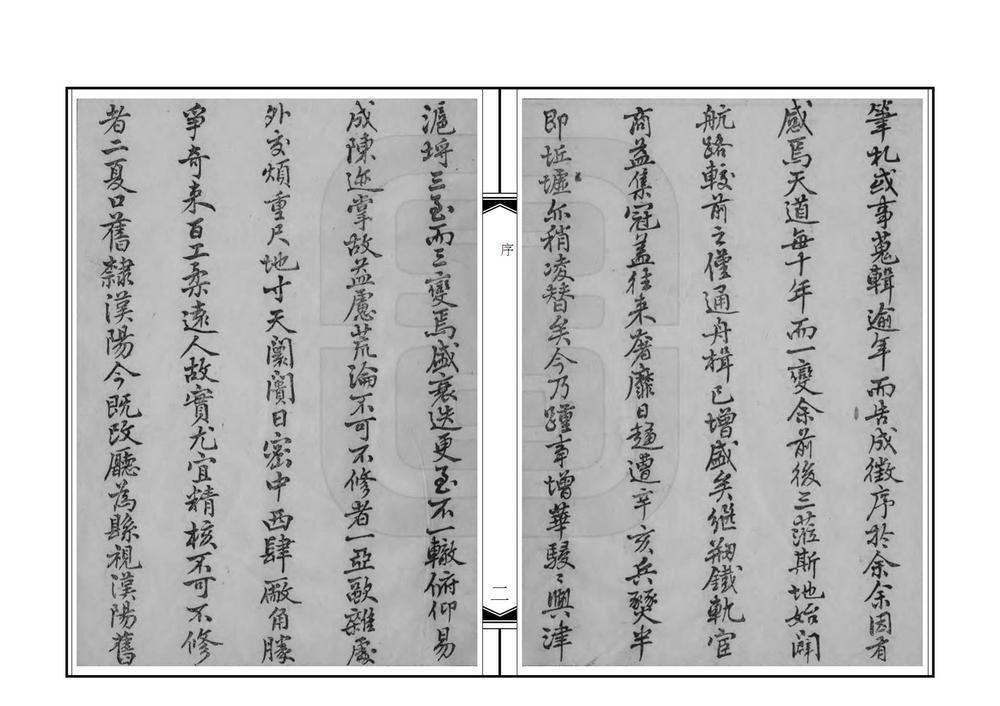 筆札或事蒐輯逾年而告成徵序於余余因有
感焉天道每十年而一變余前後三蒞斯地始闢
航路較前之僅通舟楫已增盛矣繼剏鐵軌宦
商益集冠蓋往來奢靡日趨遭辛亥兵燹半
即坵墟亦稍凌替矣今乃踵事增華駸〻與津
滬埒三至而三變焉盛衰迭更至不一轍俯仰易
成陳迹掌故益慮荒淪不可不修者一亞歐雜處
外交煩重尺地寸天闤闠日密中西肆廠角勝
爭奇來百工柔遠人故實尤宜精核不可不修
者二夏口舊隸漢陽今既改廳為縣視漢陽舊
序
二